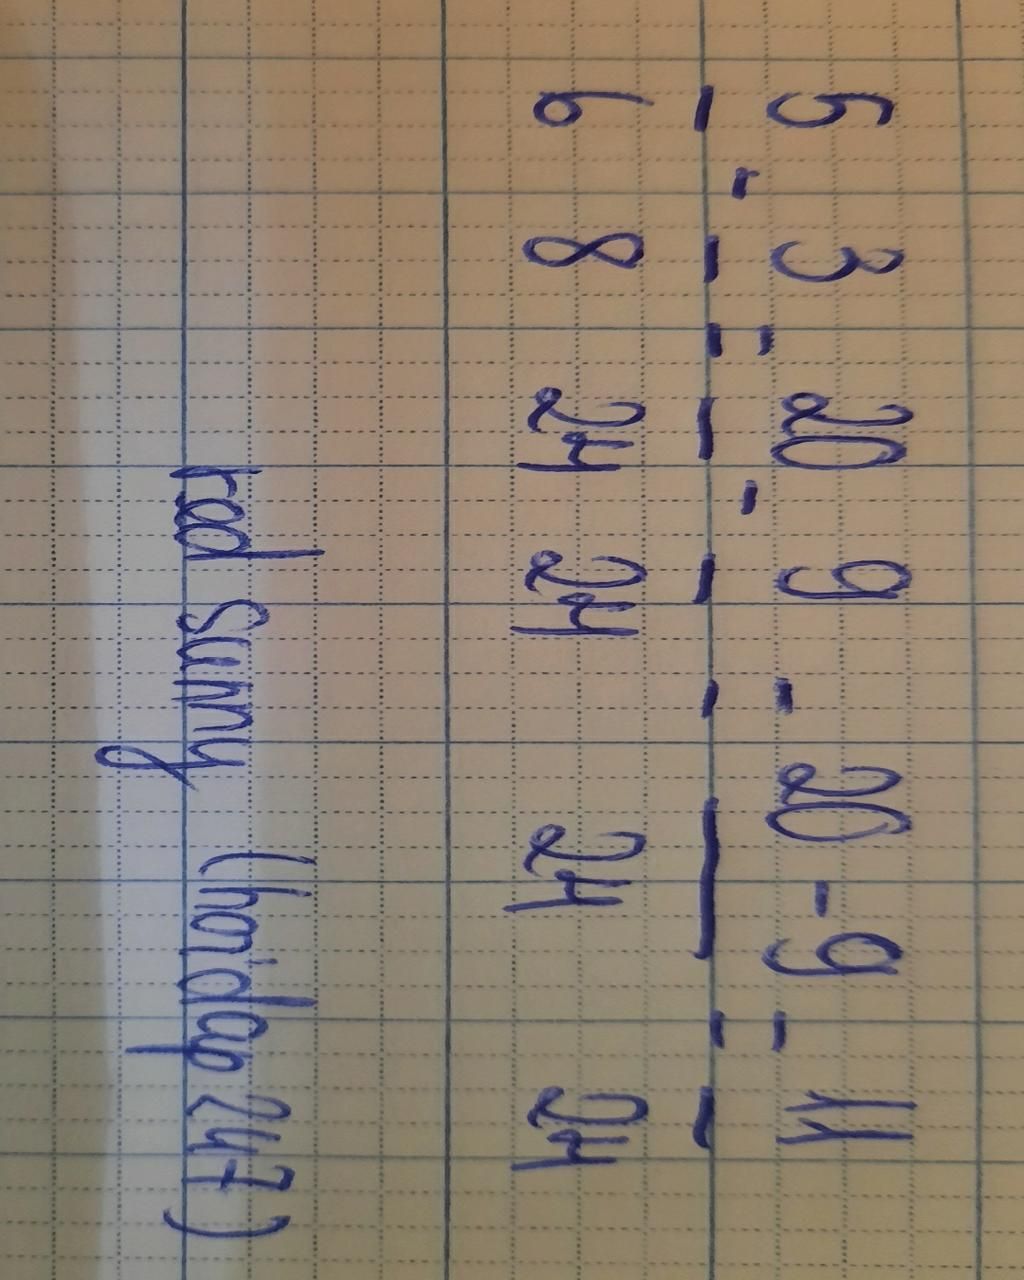 5/6 - 3/8 = 20/24 - 9/24 = (20 - 9)/24 = 11/24
rad sunny (hoidap 247)